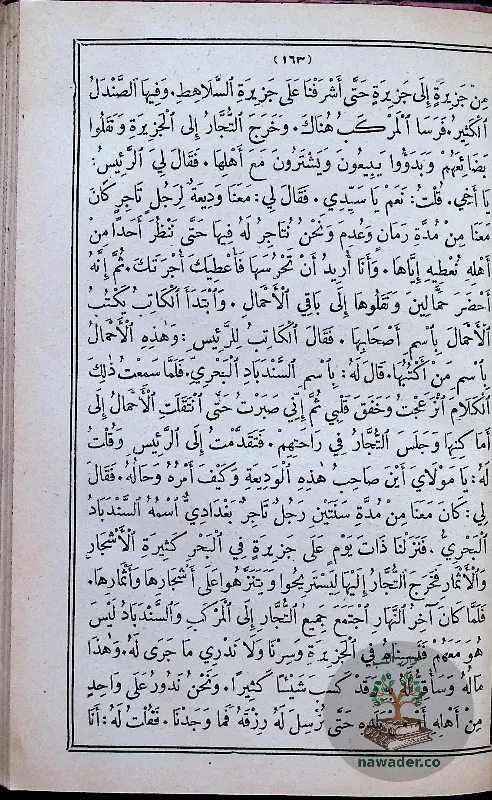 (١٦٣)
مِنْ جَزِيرَةٍ إِلَى جَزِيرَةٍ حَتَّى أَشْرَفْنَا عَلَى جَزِيرَةِ ٱلسَّلَاهِطِ. وَفِيهَا ٱلصَّنْدَلُ
ٱلْكَثِيرُ. فَرَسَا ٱلْمَرْكَبُ هُنَاكَ. وَخَرَجَ ٱلتُّجَّارُ إِلَى ٱلْجَزِيرَةِ وَنَقَلُوا
بَضَائِعَهُمْ وَبَدَؤُوا يَبِيعُونَ وَيَشْتَرُونَ مَعَ أَهْلِهَا. فَقَالَ لِيَ ٱلرَّئِيسُ:
يَا أَخِي. قُلْتُ: نَعَمْ يَا سَيِّدِي. فَقَالَ لِي: مَعَنَا وَدِيعَةٌ لِرَجُلٍ تَاجِرٍ كَانَ
مَعَنَا مِنْ مُدَّةِ زَمَانٍ وَعُدِمَ وَنَحْنُ نُتَاجِرُ لَهُ فِيهَا حَتَّى نَنْظُرَ أَحَدًا مِنْ
أَهْلِهِ نُعْطِيهِ إِيَّاهَا. وَأَنَا أُرِيدُ أَنْ تَحْرُسَهَا فَأُعْطِيكَ أُجْرَتَكَ. ثُمَّ إِنَّهُ
أَحْضَرَ حَمَّالِينَ وَنَقَلُوهَا إِلَى بَاقِي ٱلْأَحْمَالِ. وَٱبْتَدَأَ ٱلْكَاتِبُ يَكْتُبُ
ٱلْأَحْمَالَ بِٱسْمِ أَصْحَابِهَا. فَقَالَ ٱلْكَاتِبُ لِلرَّئِيسِ: وَهٰذِهِ ٱلْأَحْمَالُ
بِٱسْمِ مَنْ أَكْتُبُهَا. قَالَ لَهُ: بِٱسْمِ ٱلسَّنْدَبَادِ ٱلْبَحْرِيِّ. فَلَمَّا سَمِعْتُ ذٰلِكَ
ٱلْكَلَامَ ٱنْزَعَجْتُ وَخَفَقَ قَلْبِي ثُمَّ إِنِّي صَبَرْتُ حَتَّى ٱنْتَقَلَتِ ٱلْأَحْمَالُ إِلَى
أَمَاكِنِهَا وَجَلَسَ ٱلتُّجَّارُ فِي رَاحَتِهِمْ. فَتَقَدَّمْتُ إِلَى ٱلرَّئِيسِ وَقُلْتُ
لَهُ: يَا مَوْلَايَ أَيْنَ صَاحِبُ هٰذِهِ ٱلْوَدِيعَةِ وَكَيْفَ أَمْرُهُ وَحَالُهُ. فَقَالَ
لِي: كَانَ مَعَنَا مِنْ مُدَّةِ سَنَتَيْنِ رَجُلٌ تَاجِرٌ بَغْدَادِيٌّ ٱسْمُهُ ٱلسَّنْدَبَادُ
ٱلْبَحْرِيُّ. فَنَزَلْنَا ذَاتَ يَوْمٍ عَلَى جَزِيرَةٍ فِي ٱلْبَحْرِ كَثِيرَةِ ٱلْأَشْجَارِ
وَٱلْأَثْمَارِ فَخَرَجَ ٱلتُّجَّارُ إِلَيْهَا لِيَسْتَرِيحُوا وَيَتَنَزَّهُوا عَلَى أَشْجَارِهَا وَأَثْمَارِهَا.
فَلَمَّا كَانَ آخِرُ ٱلنَّهَارِ ٱجْتَمَعَ جَمِيعُ ٱلتُّجَّارِ إِلَى ٱلْمَرْكَبِ وَٱلسَّنْدَبَادُ لَيْسَ
هُوَ مَعَهُمْ فَنَسِينَاهُ فِي ٱلْجَزِيرَةِ وَسِرْنَا وَلَا نَدْرِي مَا جَرَى لَهُ. وَهٰذَا
مَالُهُ وَقَدْ كَسَبَ شَيْئًا كَثِيرًا. وَنَحْنُ نَدُورُ عَلَى وَاحِدٍ
مِنْ أَهْلِهِ حَتَّى نُرْسِلَ لَهُ رِزْقَهُ فَمَا وَجَدْنَا. فَقُلْتُ لَهُ: أَنَا
nawader.co